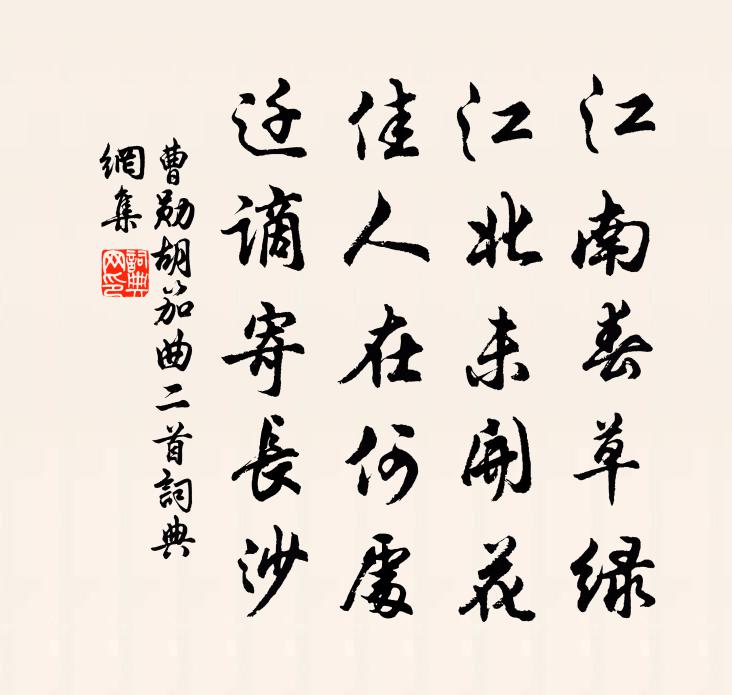 江南春草绿
江北未開花
佳人在何處
迁謫寄長沙
曹勋胡笳曲二首詞典
網集
詞典
网印